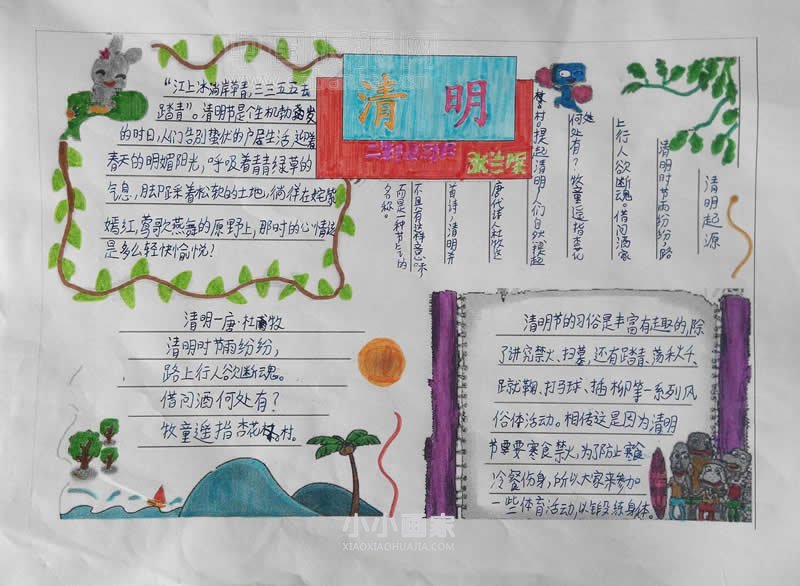 清明
二年级四班
张兰馨
"江上冰消岸草青,三三五五去
踏青"。清明节是个生机勃发
的时日,人们告别蛰伏的户居生活,迎着
春天的明媚阳光,呼吸着青青绿草的
气息,脚踩着松软的土地,徜徉在姹紫
嫣红,莺歌燕舞的原野上,那时的心情该
是多么轻快愉悦!
清明起源
清明时节雨纷纷,路
上行人欲断魂。借问酒家
何处有?牧童遥指杏花
村。提起清明,人们自然提起
唐代诗人杜牧这
首诗,清明并
不具有这样意味
而是一种节气的
名称。
清明一唐·杜牧
清明时节雨纷纷,
路上行人欲断魂。
借问酒何处有?
牧童遥指杏花村。
清明节的习俗是丰富有趣的,除
了讲究禁火、扫墓,还有踏青、荡秋千、
蹴鞠、打马球、插柳等一系列风
俗体活动。相传这是因为清明
节要寒食禁火,为了防止寒食
冷餐伤身,所以大家来参加
一些体育活动,以锻练身体。
小小画家
XIAOXIAOHUAJIA.COM